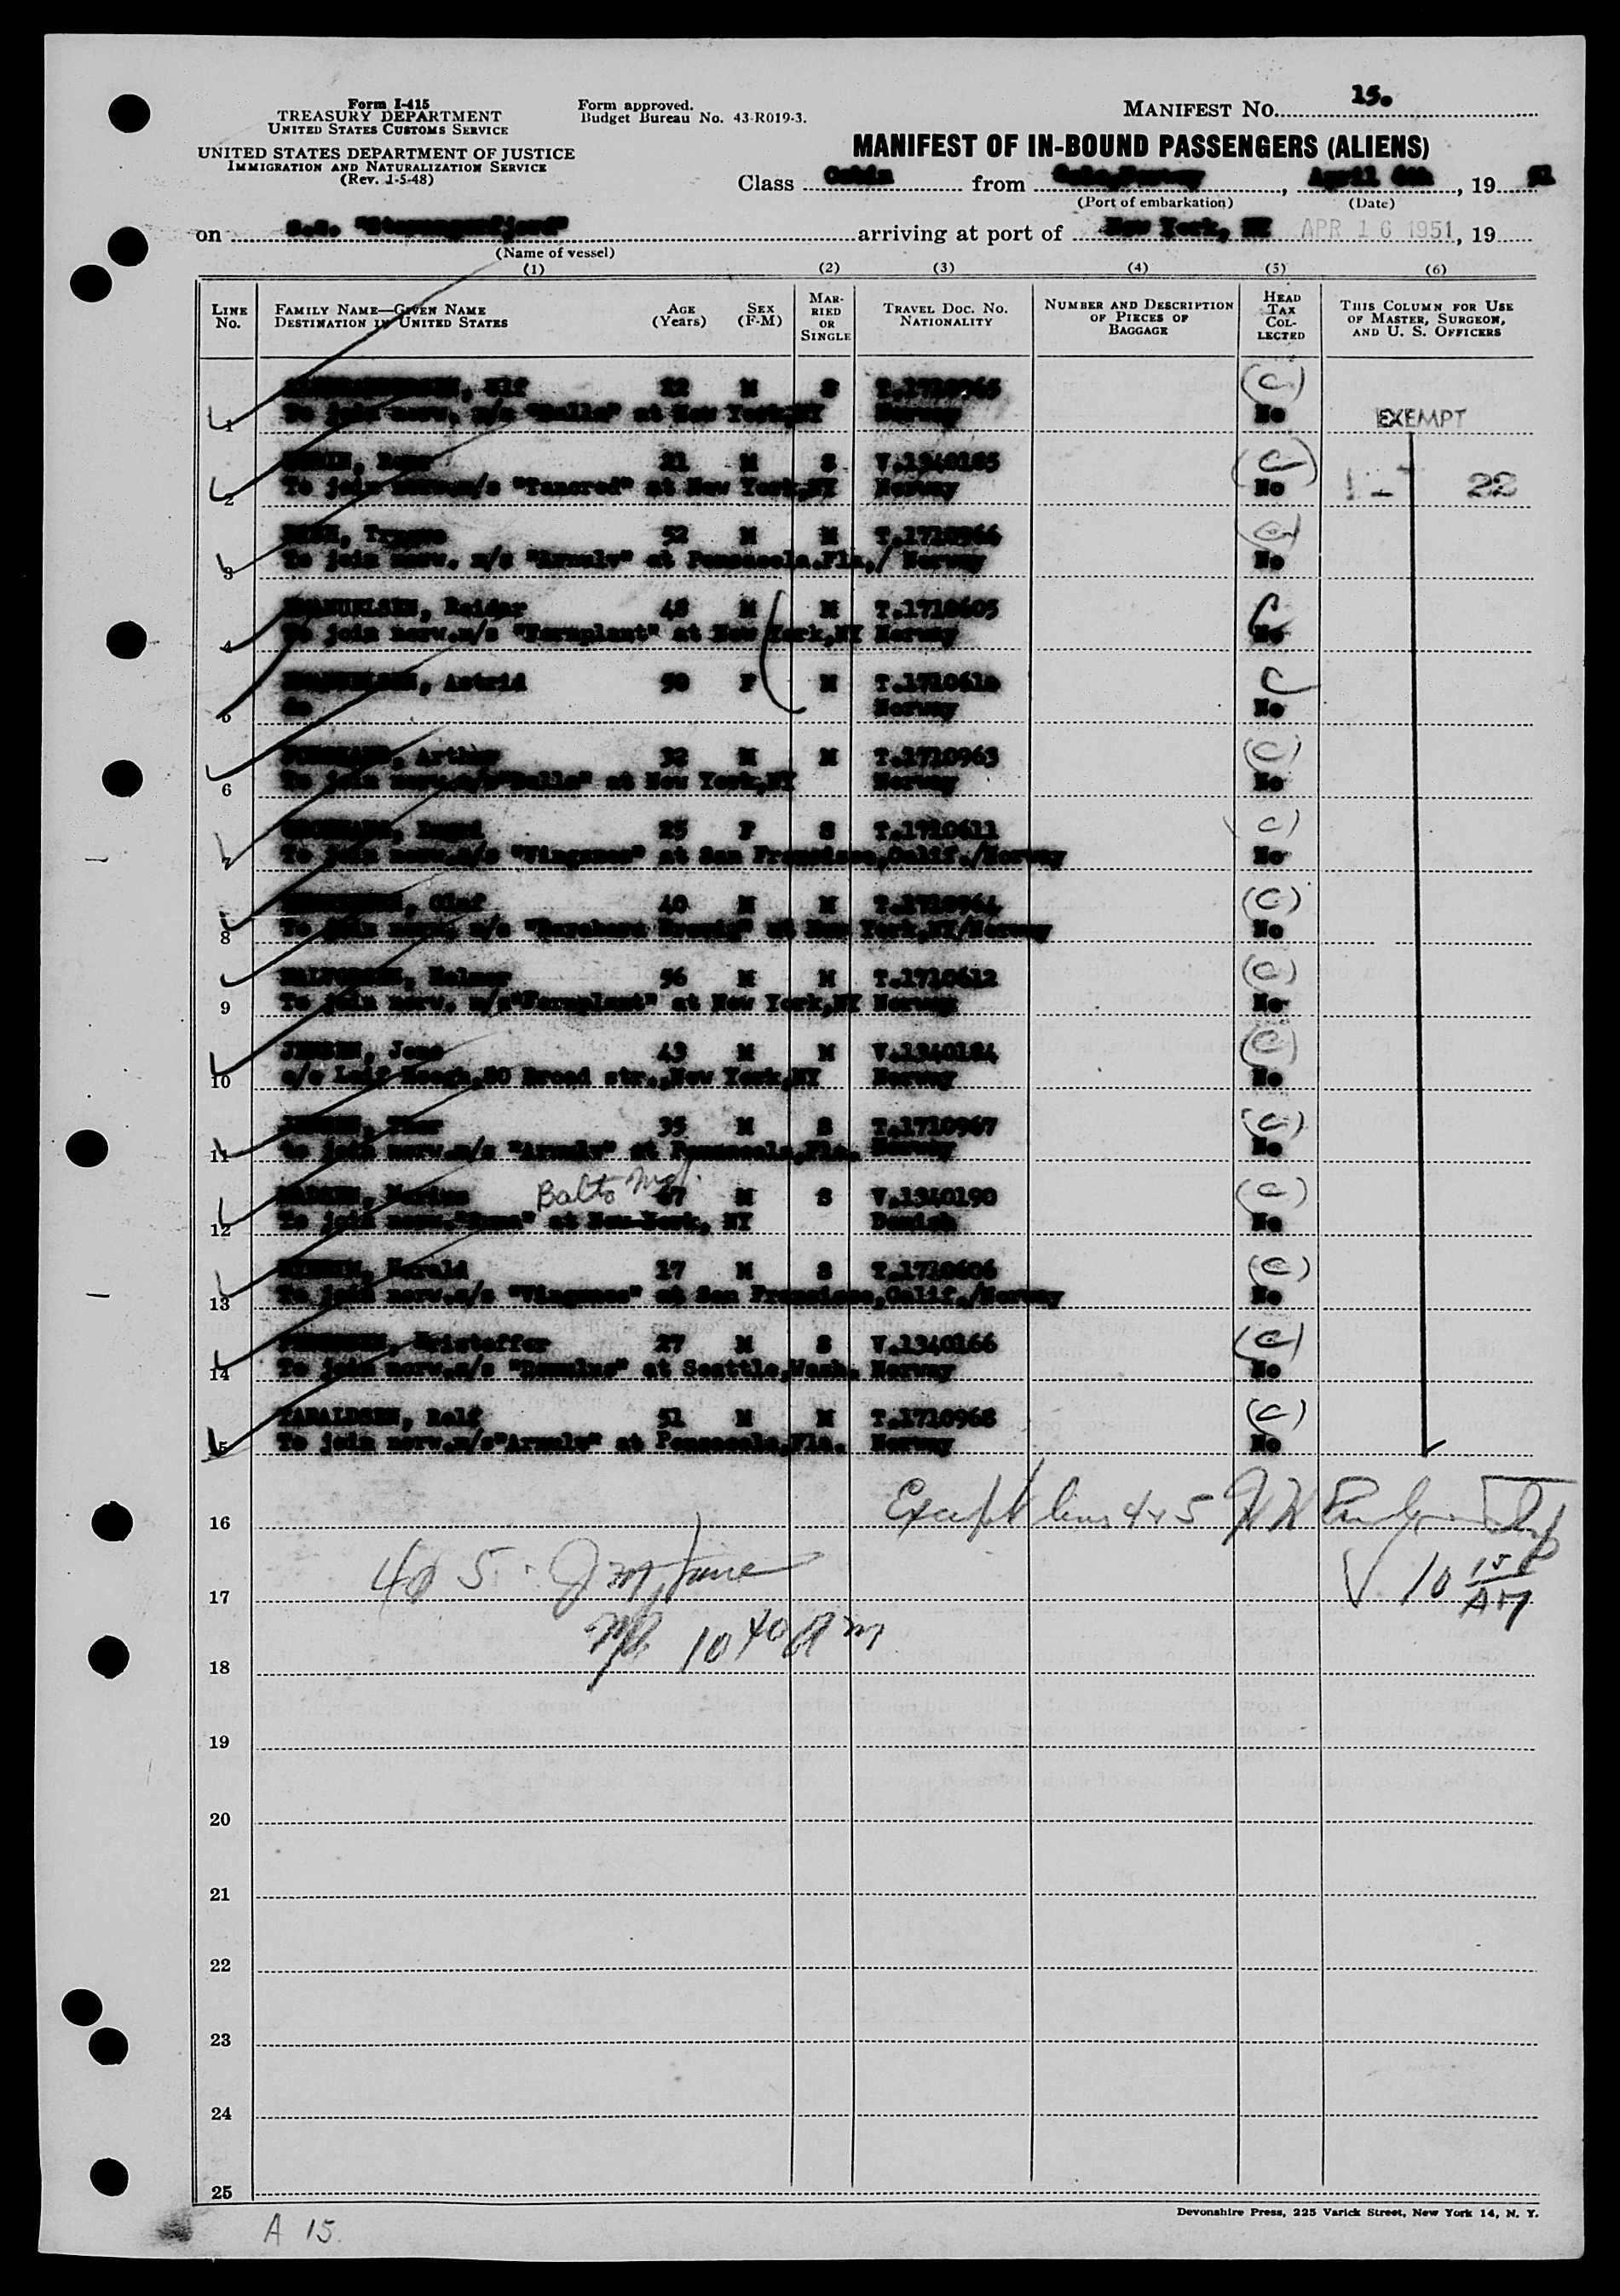 Form I-415
TREASURY DEPARTMENT
UNITED STATES CUSTOMS SERVICE
UNITED STATES DEPARTMENT OF JUSTICE
IMMIGRATION AND NATURALIZATION SERVICE
(Rev. 1-5-48)
Form approved.
Budget Bureau No. 43-R019-3.
MANIFEST NO. 15.
MANIFEST OF IN-BOUND PASSENGERS (ALIENS)
Class Cabin from Oslo, Norway, April 6th, 19 51
(Port of embarkation) (Date)
on S.S. "Stavangerfjord" arriving at port of New York, NY APR 16 1951, 19
(Name of vessel)
(1) (2) (3) (4) (5) (6)
LINE NO. FAMILY NAME—GIVEN NAME DESTINATION IN UNITED STATES AGE (Years) SEX (F-M) MARRIED OR SINGLE TRAVEL DOC. NO. NATIONALITY NUMBER AND DESCRIPTION OF PIECES OF BAGGAGE HEAD TAX COLLECTED THIS COLUMN FOR USE OF MASTER, SURGEON, AND U. S. OFFICERS
1 22 M S T.1710965 (C)
To join norw. m/s "Belle" at New York, NY Norway No EXEMPT
2 21 M S V.1340185 (C)
To join norw.m/s "Tancred" at New York, NY Norway No 22
3 Trygve 52 M M T.1710966 (C)
To join norw. m/s "Arnulv" at Pensacola.Fla./ Norway No
4 EMANUELSEN, Reidar 48 M M T.1710605 C
To join norw.m/s "Fernplant" at New York,NY Norway No
5 EMANUELSEN, Astrid 50 F M T.1710610 C
do Norway No
6 Arthur 32 M M T.1710963 (C)
To join norw.m/s"Belle" at New York,NY Norway No
7 25 F S T.1710611 (C)
To join norw.m/s "Vingnes" at San Francisco,Calif./Norway No
8 Olaf 40 M M T.1710964 (C)
To join norw. m/s at New York,NY/Norway No
9 HALVORSEN, Helmer 56 M M T.1710612 (C)
To join norw. m/s"Fernplant" at New York,NY Norway No
10 JENSEN, Jens 43 M M V.1340184 (C)
c/o Leif Hoegh,80 Broad str.,New York,NY Norway No
11 JENSEN, Thor 35 M S T.1710967 (C)
to join norw.m/s "Arnulv" at Pensacola,Fla. Norway No
Balto Md.
12 67 M S V.1340190 (C)
To join norw. at New York, NY Danish No
13 Harald 17 M S T.1710606 (C)
To join norw.m/s "Vingnes" at San Francisco,Calif./Norway No
14 Kristoffer 27 M S V.1340166 (C)
To join norw.m/s "Romulus" at Seattle,Wash. Norway No
15 TARALDSEN, Rolf 51 M M T.1710968 (C)
To join norw.m/s"Arnulv" at Pensacola,Fla. Norway No
16 Except lines 4 & 5
10 15 AM
17 4 & 5
10 40 am
18
19
20
21
22
23
24
25
Devonshire Press, 225 Varick Street, New York 14, N. Y.
A 15.